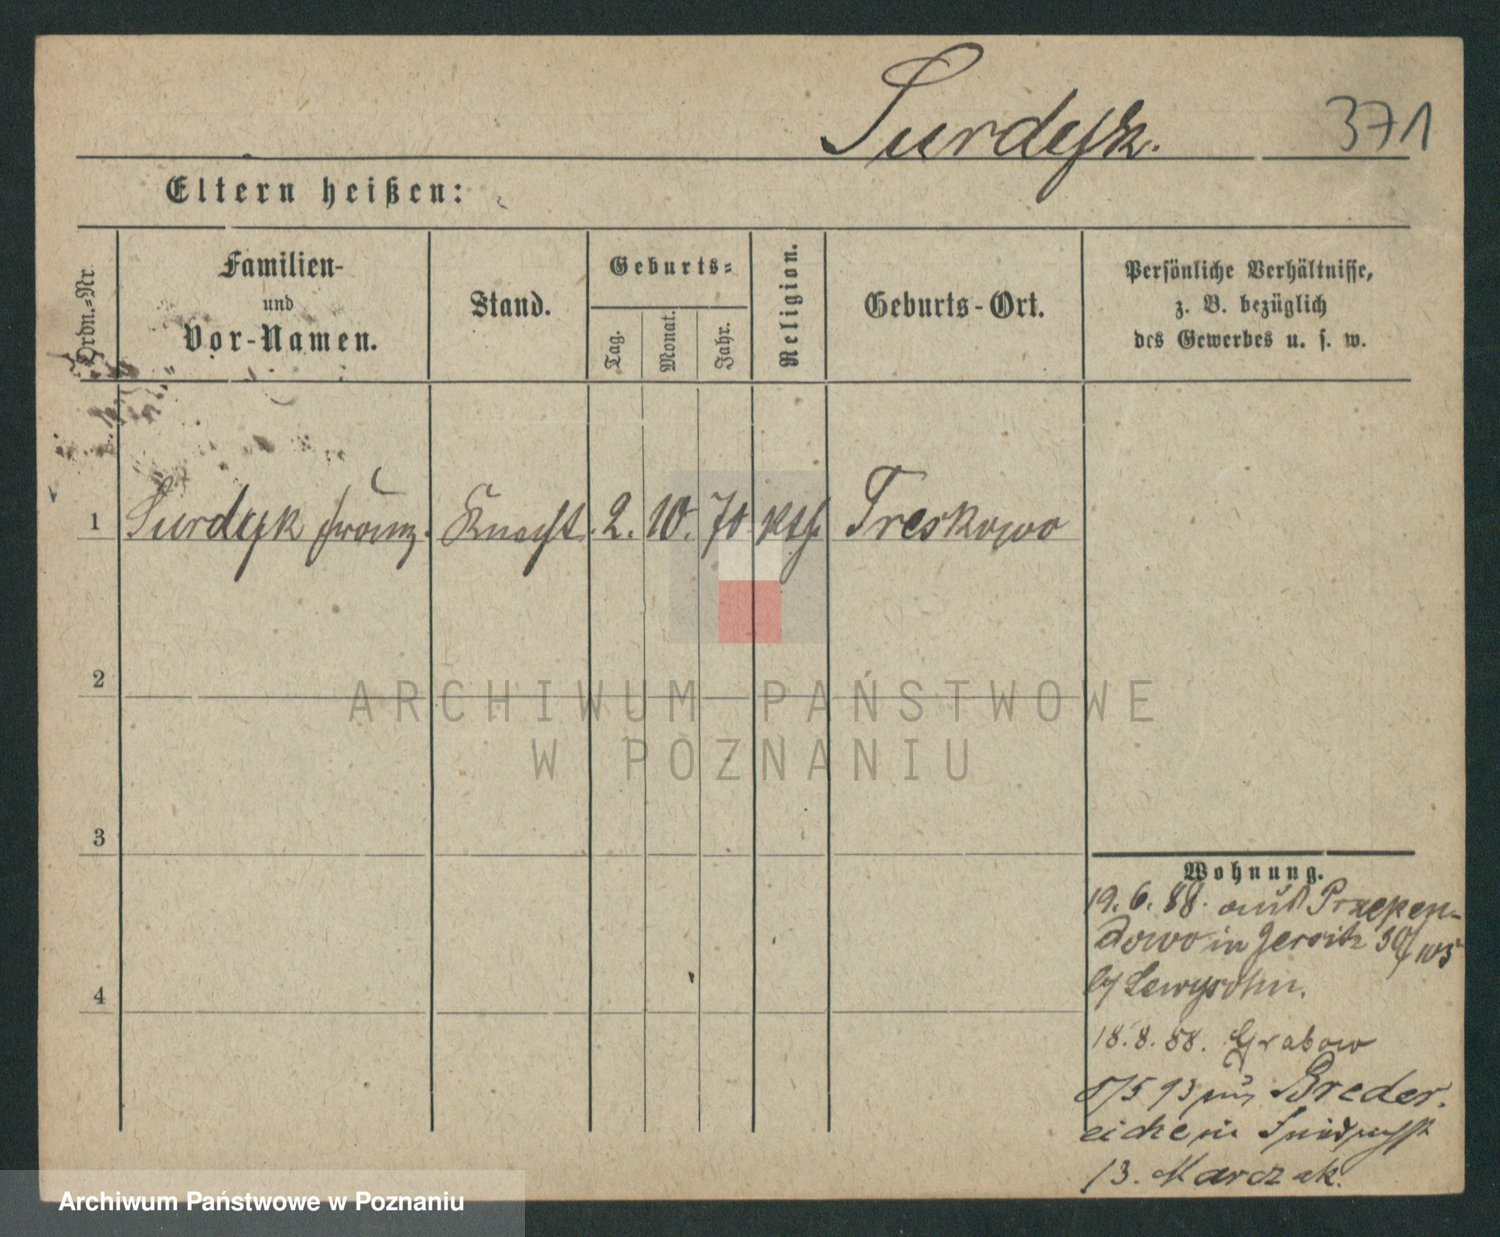 Surdyk.
371
Eltern heißen:
Ordn.-Nr.
Familien-
und
Vor-Namen.
Stand.
Geburts-
Tag.
Monat.
Jahr.
Religion.
Geburts-Ort.
Persönliche Verhältnisse,
z. B. bezüglich
des Gewerbes u. s. w.
1 Surdyk Franz. Knecht. 2. 10. 70 kth Treskowo
2
3
4
ARCHIWUM PAŃSTWOWE
W POZNANIU
Wohnung.
19. 6. 88. aus Przepen-
dowo in Jersitz 30/105
b/ Lewysohn.
18. 8. 88. Grabow
5/5 93 aus Breder-
eiche in
13. Marczak.
Archiwum Państwowe w Poznaniu